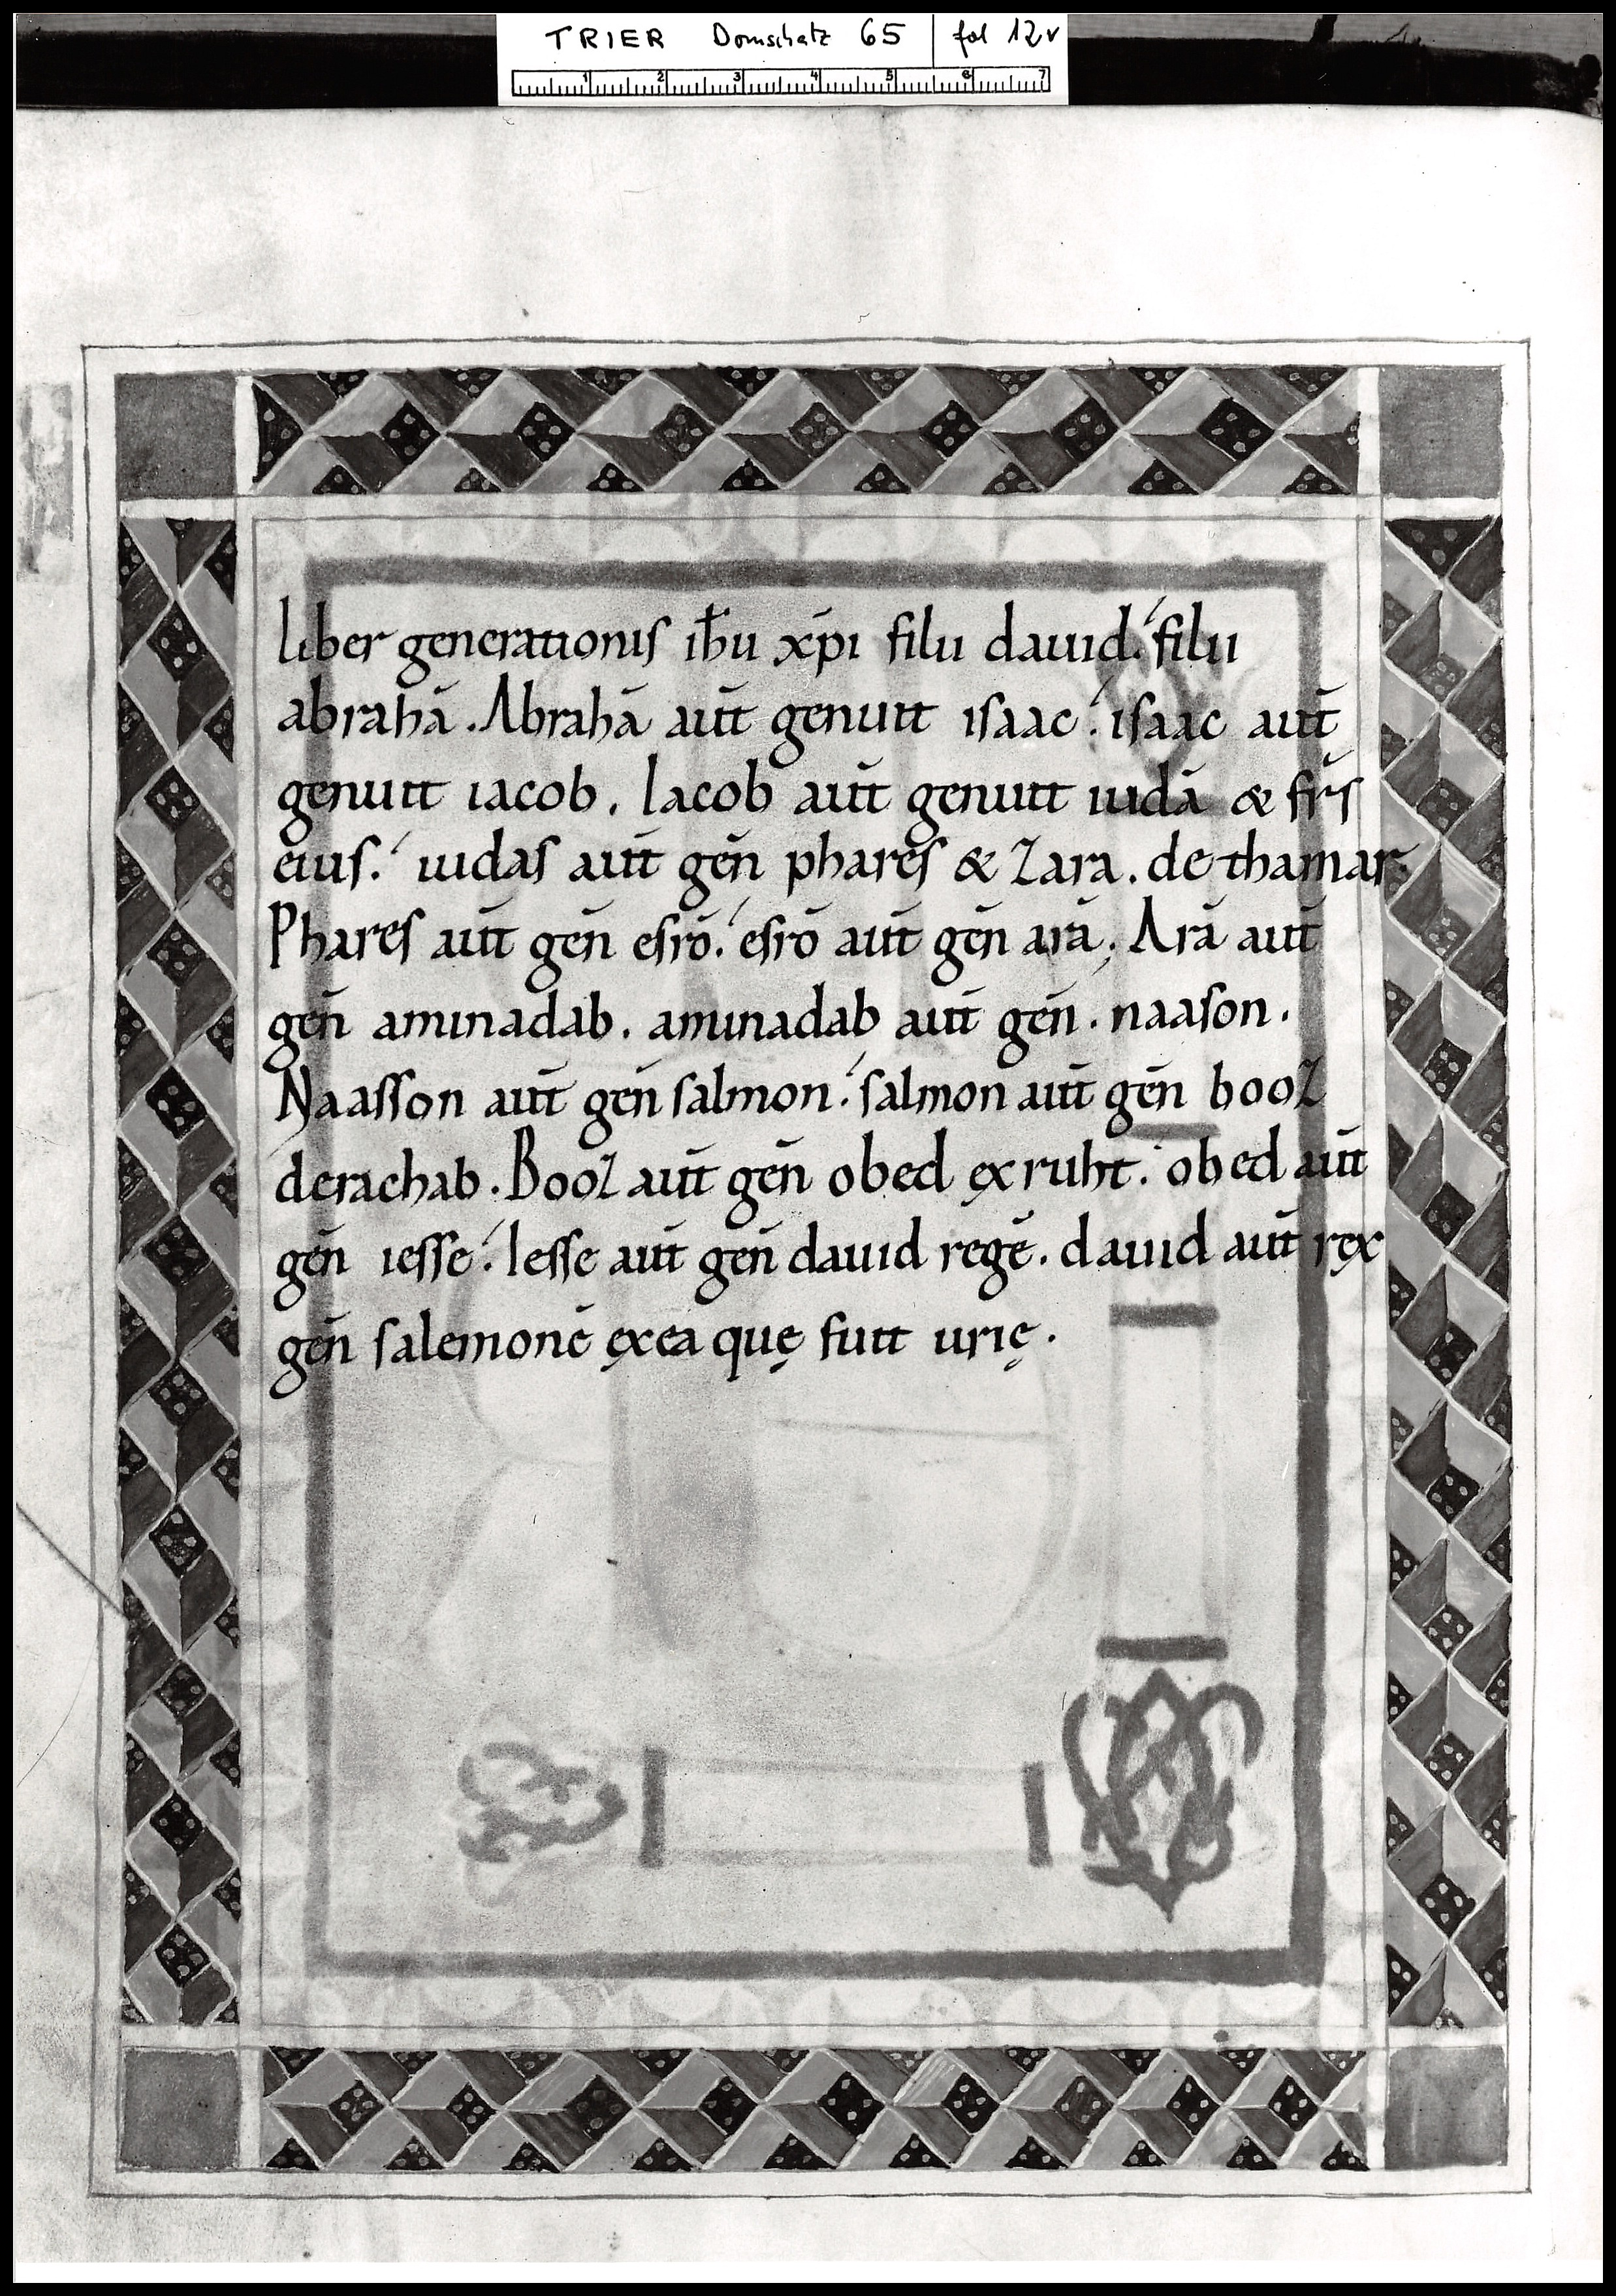 TRIER Domschatz 65 fol 12v
1 2 3 4 5 6 7
liber generationis ihu̅ xp̅i filii dauid. filii
abrahā. Abrahā aut̅ genuit isaac. isaac aut̅
genuit iacob. Iacob aut̅ genuit iudā & fr̅s
eius. iudas aut̅ gen̅ phares & Zara. de thamar.
Phares aut̅ gen̅ esrō. esrō aut̅ gen̅ arā. Arā aut̅
gen̅ aminadab. aminadab aut̅ gen̅. naason.
Naasson aut̅ gen̅ salmon. salmon aut̅ gen̅ booz
de rachab. Booz aut̅ gen̅ obed ex ruht. obed aut̅
gen̅ iesse. Iesse aut̅ gen̅ dauid regē. dauid aut̅ rex
gen̅ salemonē ex ea quę fuit urię.